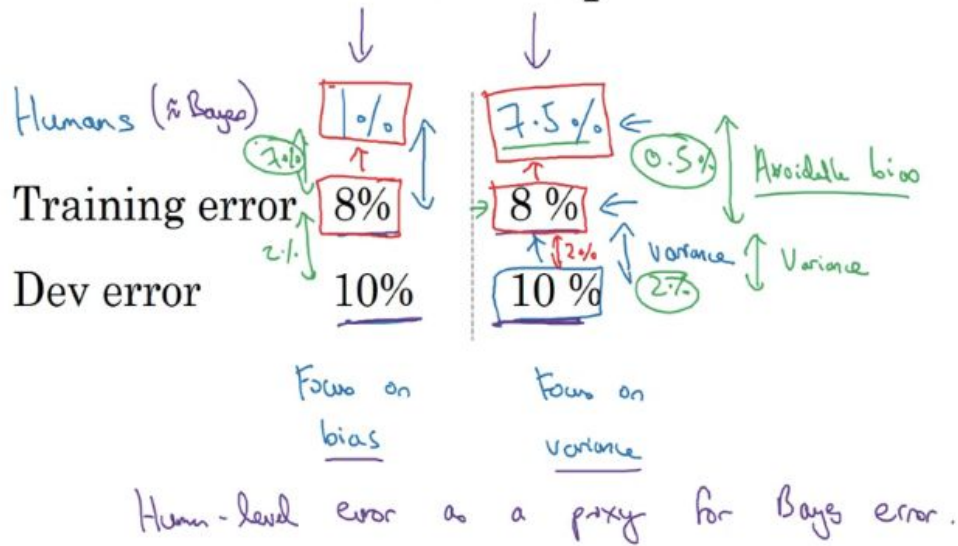 Humans (≈ Bayes) 1% 7.5%
7% 0.5% Avoidable bias
Training error 8% 8 %
2% 2% Variance Variance
Dev error 10% 10 % 2%
Focus on Focus on
bias variance
Human-level error as a proxy for Bayes error.